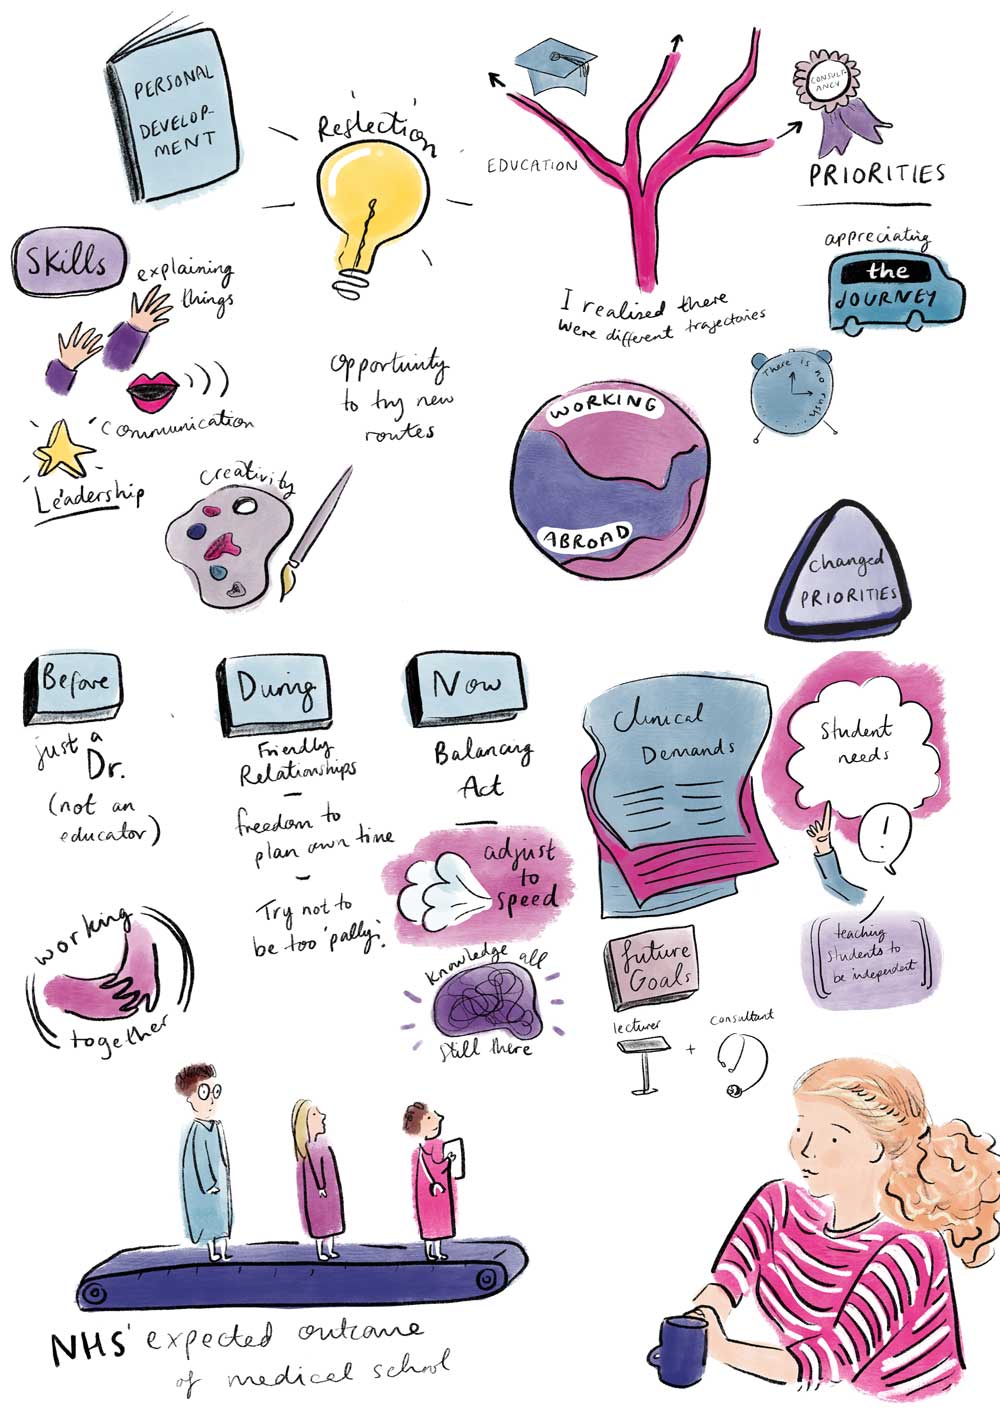 PERSONAL
DEVELOP-
MENT
Reflection
EDUCATION
CONSULT-
ANCY
PRIORITIES
Skills
explaining
things
communication
Leadership
creativity
Opportunity
to try new
routes
I realised there
were different trajectories
appreciating
the
JOURNEY
There is no rush
WORKING
ABROAD
changed
PRIORITIES
Before
just a
Dr.
(not an
educator)
working
together
During
Friendly
Relationships
–
freedom to
plan own time
–
Try not to
be too 'pally'.
Now
Balancing
Act
adjust
to
speed
Knowledge all
still there
Clinical
Demands
Student
needs
!
teaching
students to
be independent
future
Goals
lecturer
+
consultant
NHS' expected outcome
of medical school